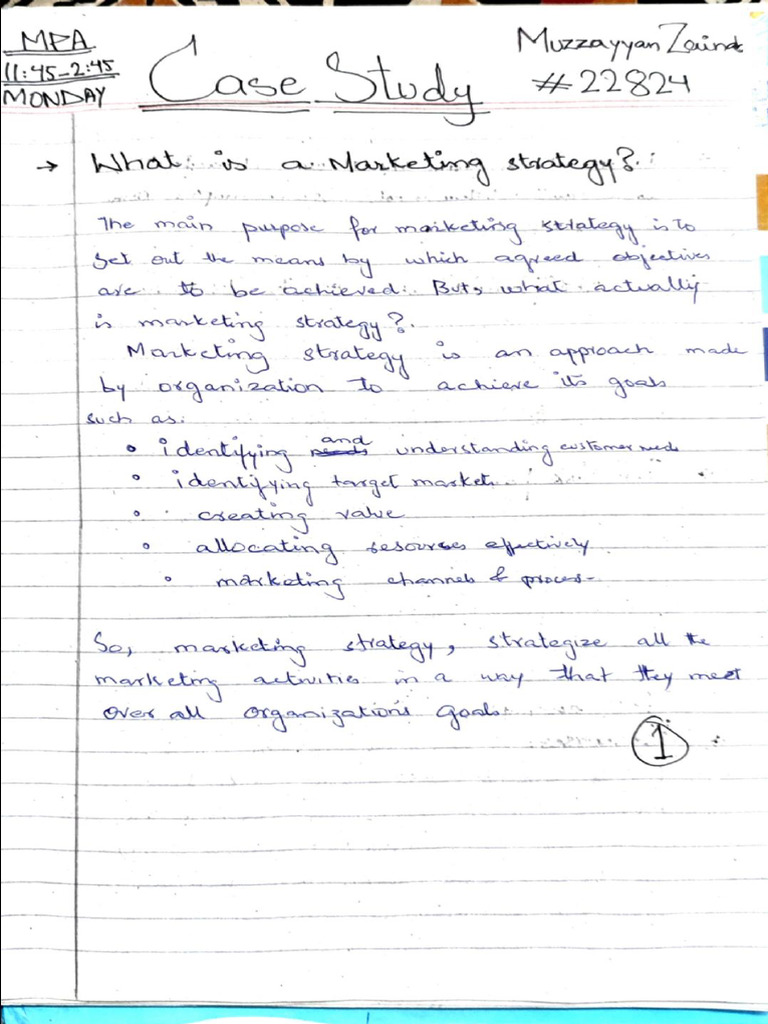 MPA
11:45-2:45
MONDAY
Case Study
Muzzayyan
#22824
→ What is a Marketing strategy?
The main purpose for marketing strategy is to
set out the means by which agreed objectives
are to be achieved. But, what actually
is marketing strategy?
Marketing strategy is an approach made
by organization to achieve its goals
such as:
• identifying and understanding customer needs
• identifying target market
• creating value
• allocating resources effectively
• marketing channels & process
So, marketing strategy, strategize all the
marketing activities in a way that they meet
over all organization's goals
1